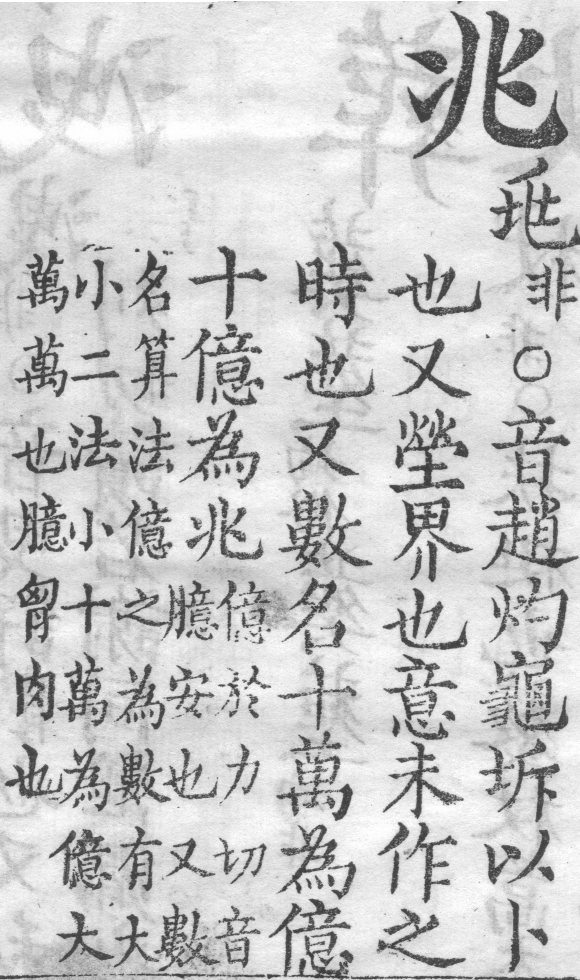 兆
非○音趙灼龜坼以卜
也又塋界也意未作之
時也又數名十萬為億
十億為兆
億於力切音
臆安也又數
名算法億之為數有大
小二法小十萬為億大
萬萬也臆胷肉也